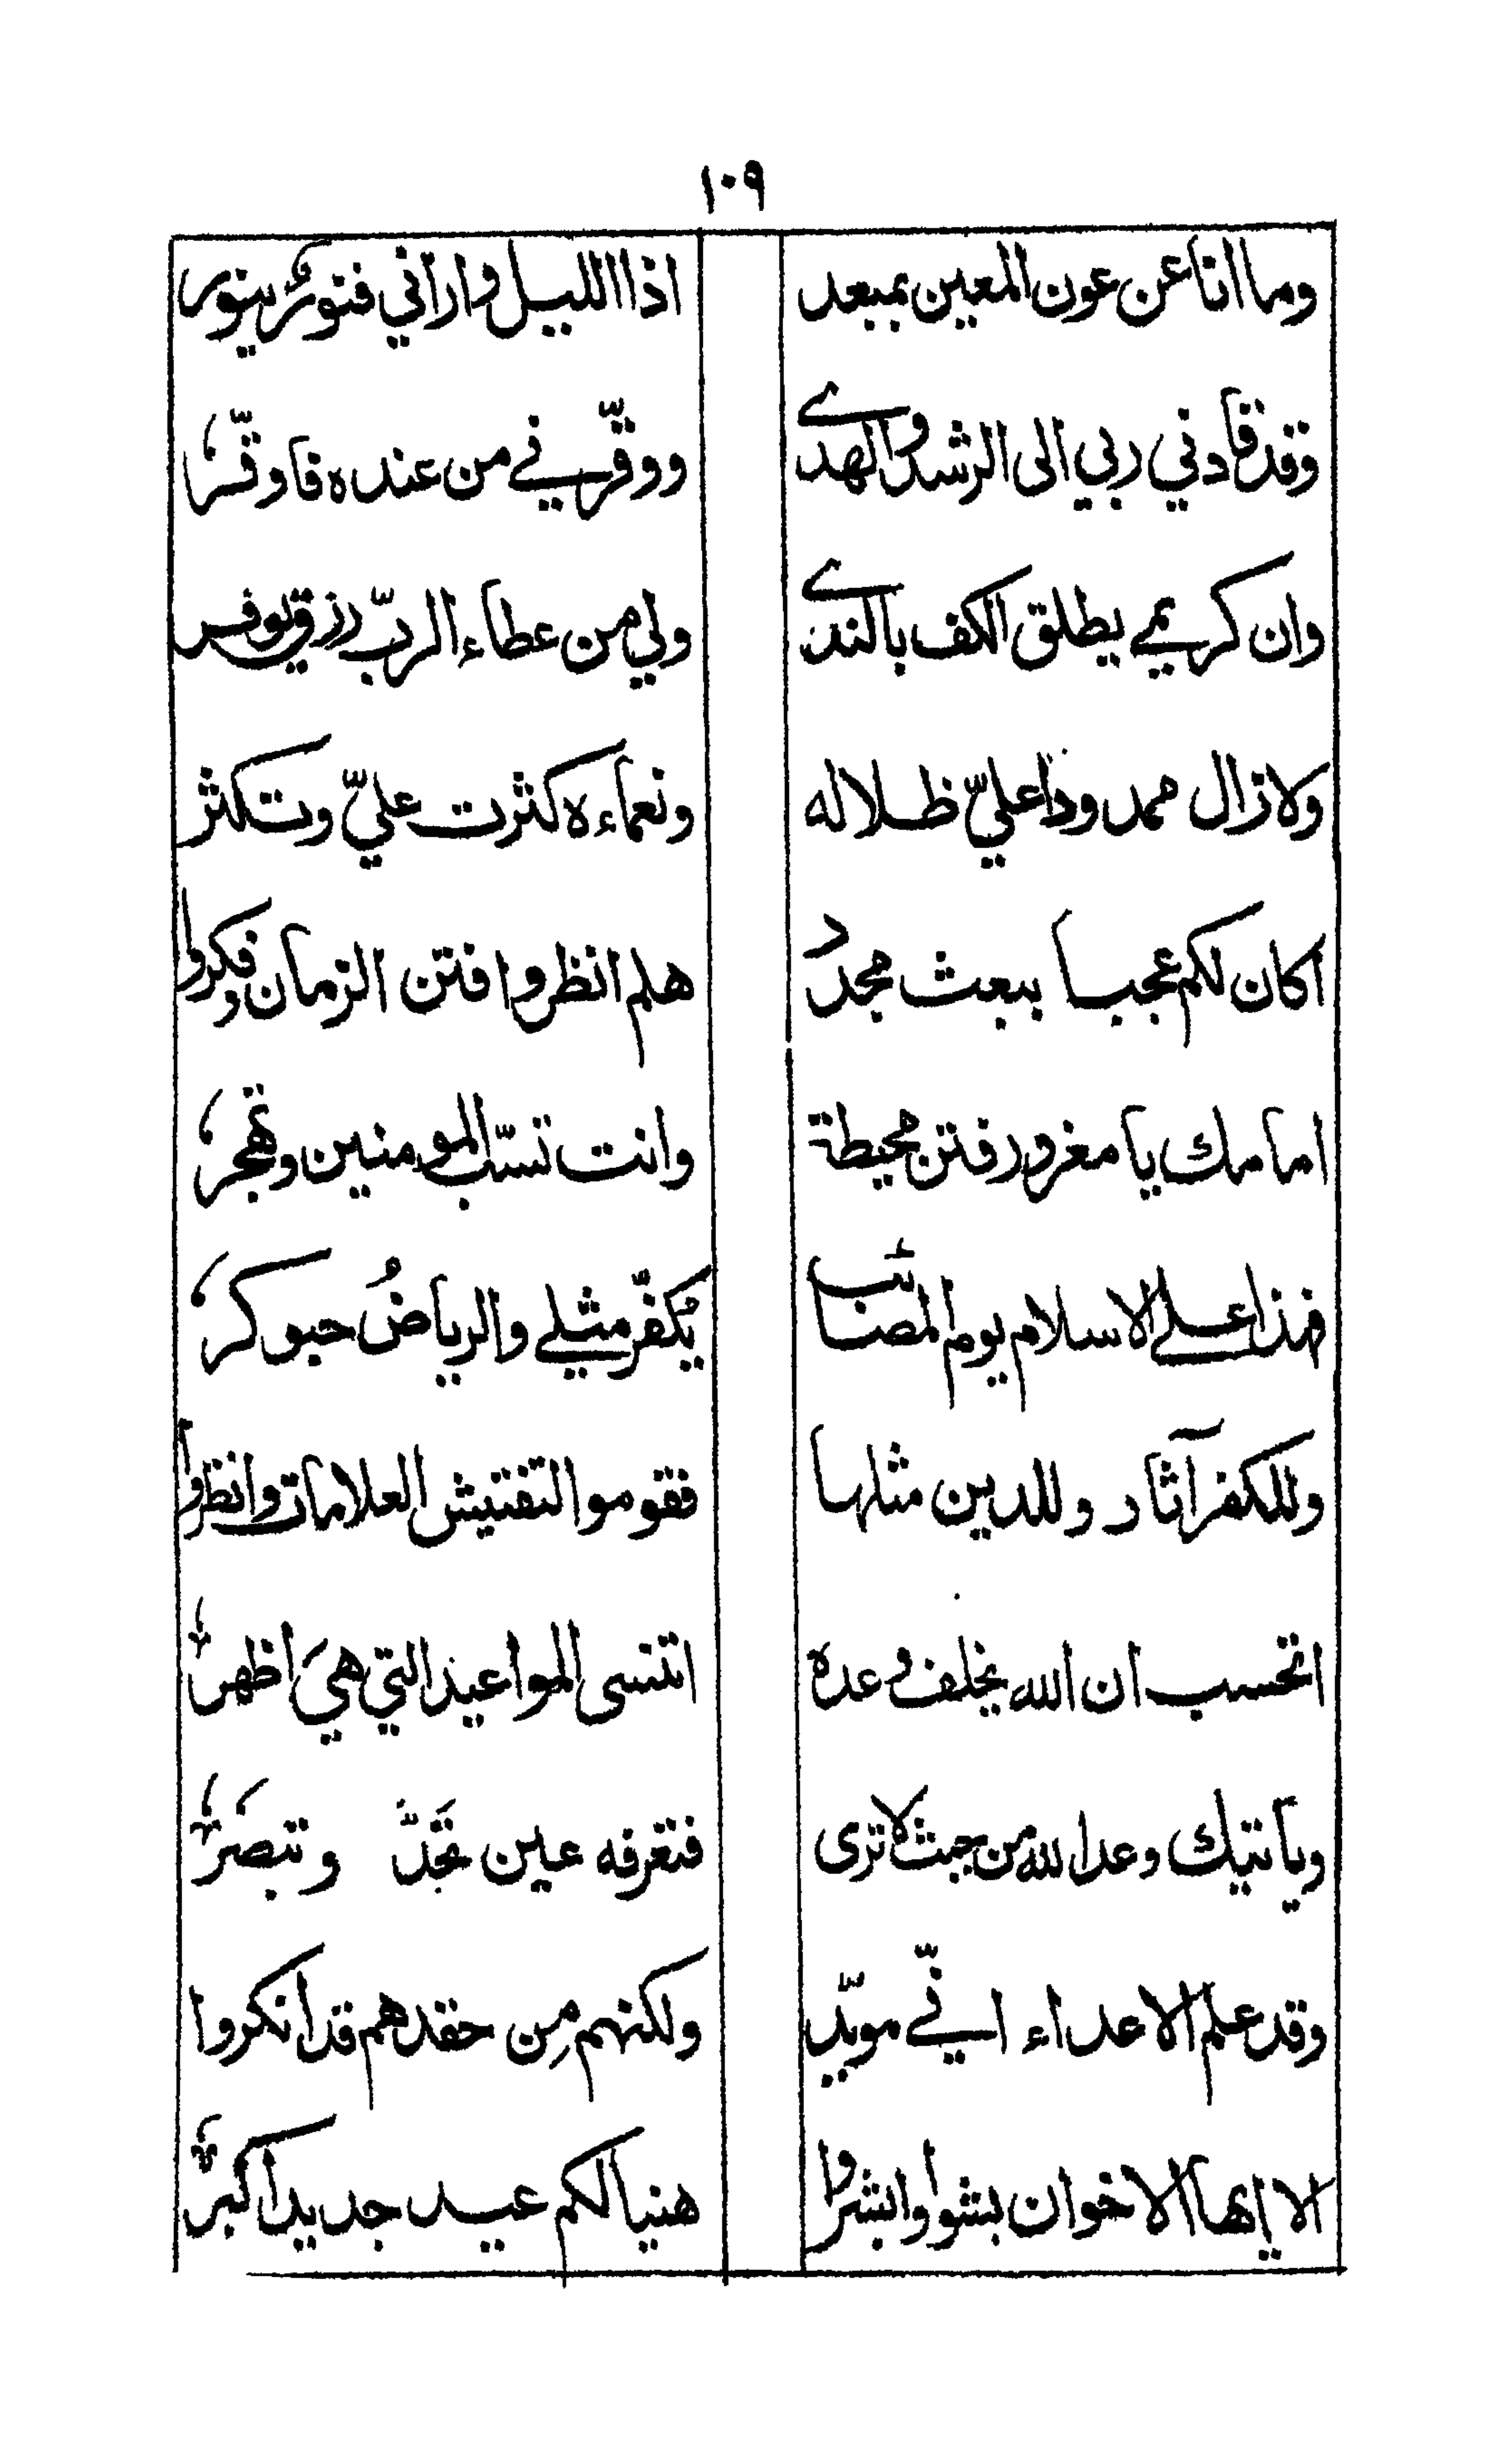 ١٠٩
وما انا عن عون المعين بمبعد اذا الليل واراني فنورٌ ينور
وقد قادني ربي الى الرشد والهدے ووقّرني من عنده فاوقّر
وان كريمي يطلق الكف بالندے ولي من عطاء الربّ رزق يوفر
ولا زال ممدودًا عليّ ظلاله ونعماءه كثرت عليّ وتكثر
اكان لكم عجبا ببعث مجدد هلم انظروا فتن الزمان وفكروا
امامك يا مغرور فتن محيطة وانت تسبّ المومنين وتهجر
فهذا على الاسلام يوم المصائب يُكفّر مثلے والرياضُ حبوكر
وللكفر آثار وللدين مثلها فقوموا لتفتيش العلامات وانظروا
اتحسب ان الله يخلف وعده اتنسى المواعيد التي هيَ اظهر
وياتيك وعد الله من حيث لا ترى فتعرفه عين تَحَدّ وتبصَر
وقد علم الاعداء انّي مويّد ولكنهم مِن حقدهم قد انكروا
الا ايها الاخوان بشوا وابشروا هنيا لكم عيد جديد اكبر